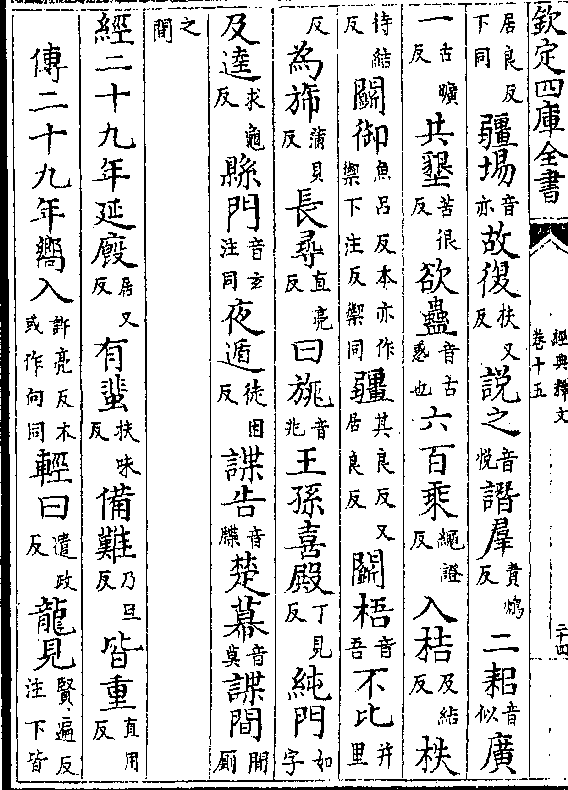 欽定四庫全書
經典釋文
卷十五
二十四
居良反下同疆埸音亦故復扶又反說之音悅譖羣責鴆反二耜音似廣
一古曠反共墾苦很反欲蠱音古惑也六百乘繩證反入桔及結反柣
待結反鬭御魚呂反本亦作禦下注反禦同疆其良反又居良反鬭梧音吾不比并里
反為斾蒲貝反長尋直亮反曰旐音兆王孫喜殿丁見反純門如字
及逵求龜反縣門音玄注同夜遁徒困反諜告音牒楚幕音莫諜間間廁
之間
經二十九年延廄居又反有蜚扶味反備難乃旦反皆重直用反
傳二十九年嚮入許亮反本或作向同輕曰遣政反龍見賢遍反注下皆